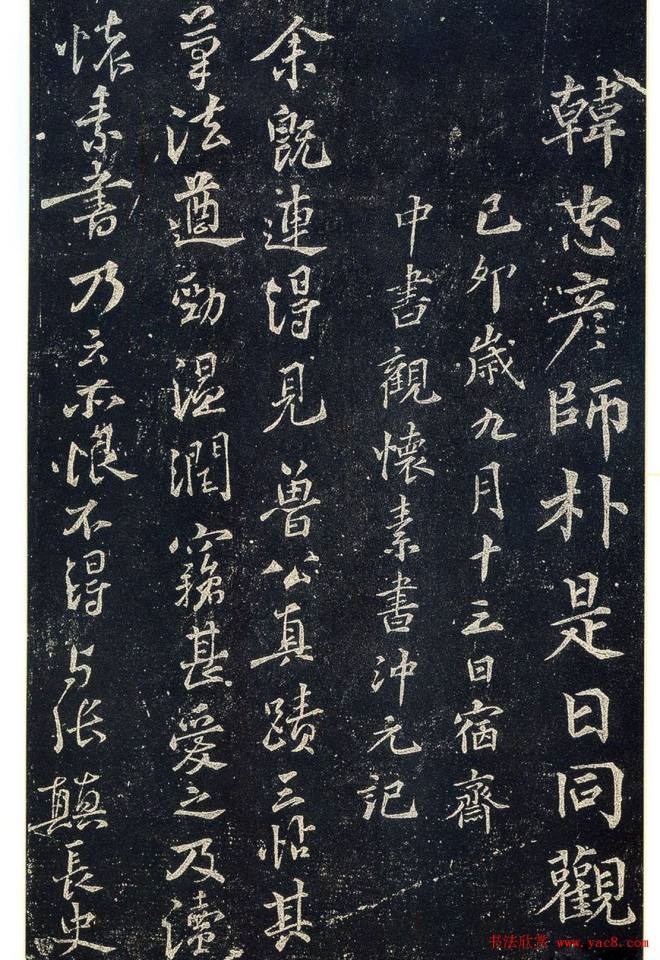 韓忠彦師朴是日同觀
己卯歲九月十三日宿齋
中書觀懷素書沖元記
余既連得見魯公真蹟三帖其
筆法遒勁温潤竊甚愛之及讀
懷素書乃云亦恨不得与張顛長史
书法欣赏 www.yac8.com